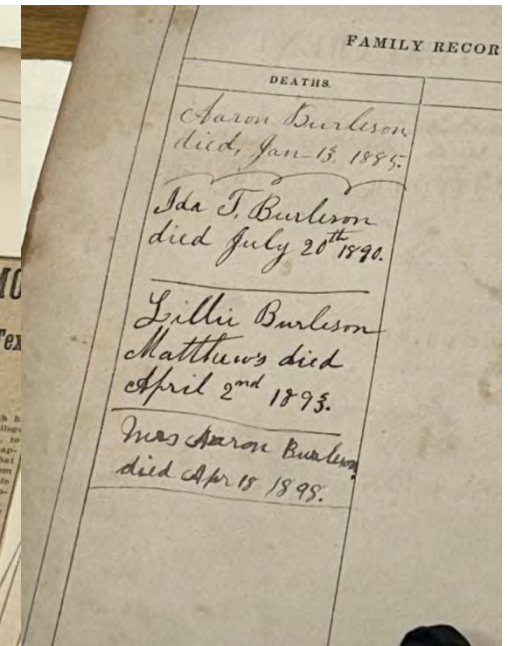 FAMILY RECOR
DEATHS.
Aaron Burleson
died, Jan-13, 1885.
Ida T. Burleson
died July 20th 1890.
Lillie Burleson
Matthews died
April 2nd 1893.
Mrs Aaron Burleson
died Apr 18 1898.
Tex